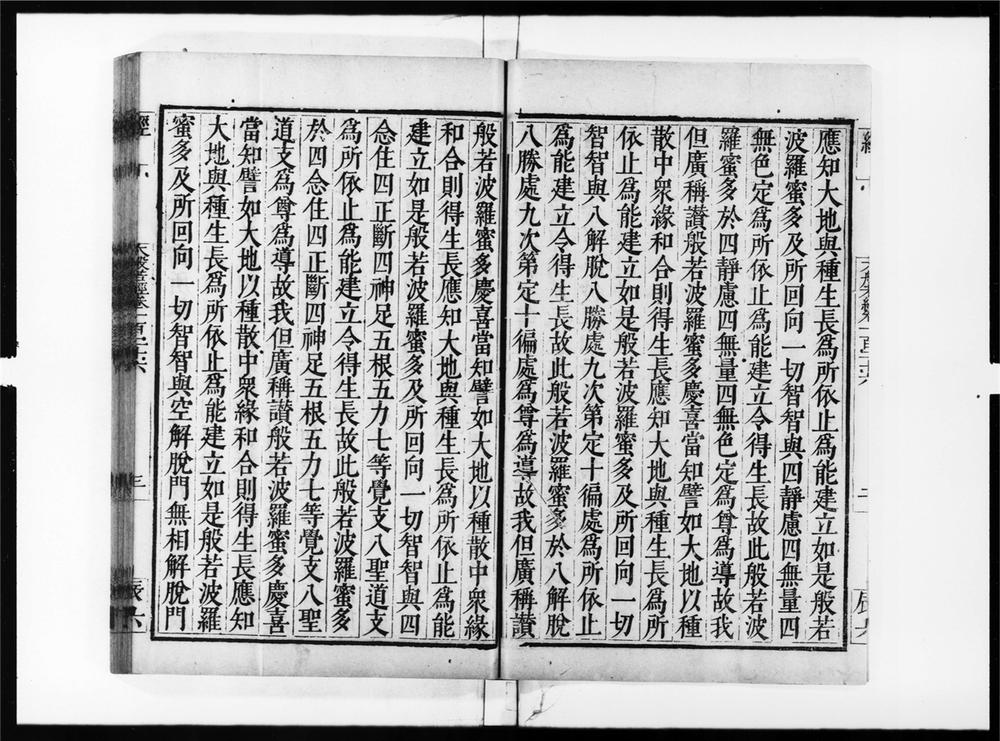 應知大地與種生長爲所依止爲能建立如是般若
波羅蜜多及所回向一切智智與四靜慮四無量四
無色定爲所依止爲能建立令得生長故此般若波
羅蜜多於四靜慮四無量四無色定爲尊爲導故我
但廣稱讃般若波羅蜜多慶喜當知譬如大地以種
散中衆緣和合則得生長應知大地與種生長爲所
依止爲能建立如是般若波羅蜜多及所回向一切
智智與八解脫八勝處九次第定十徧處爲所依止
爲能建立令得生長故此般若波羅蜜多於八解脫
八勝處九次第定十徧處爲尊爲導故我但廣稱讃
般若波羅蜜多慶喜當知譬如大地以種散中衆緣
和合則得生長應知大地與種生長爲所依止爲能
建立如是般若波羅蜜多及所回向一切智智與四
念住四正斷四神足五根五力七等覺支八聖道支
爲所依止爲能建立令得生長故此般若波羅蜜多
於四念住四正斷四神足五根五力七等覺支八聖
道支爲尊爲導故我但廣稱讃般若波羅蜜多慶喜
當知譬如大地以種散中衆緣和合則得生長應知
大地與種生長爲所依止爲能建立如是般若波羅
蜜多及所回向一切智智與空解脫門無相解脫門
經
大般若經卷一百二十六
三
辰六